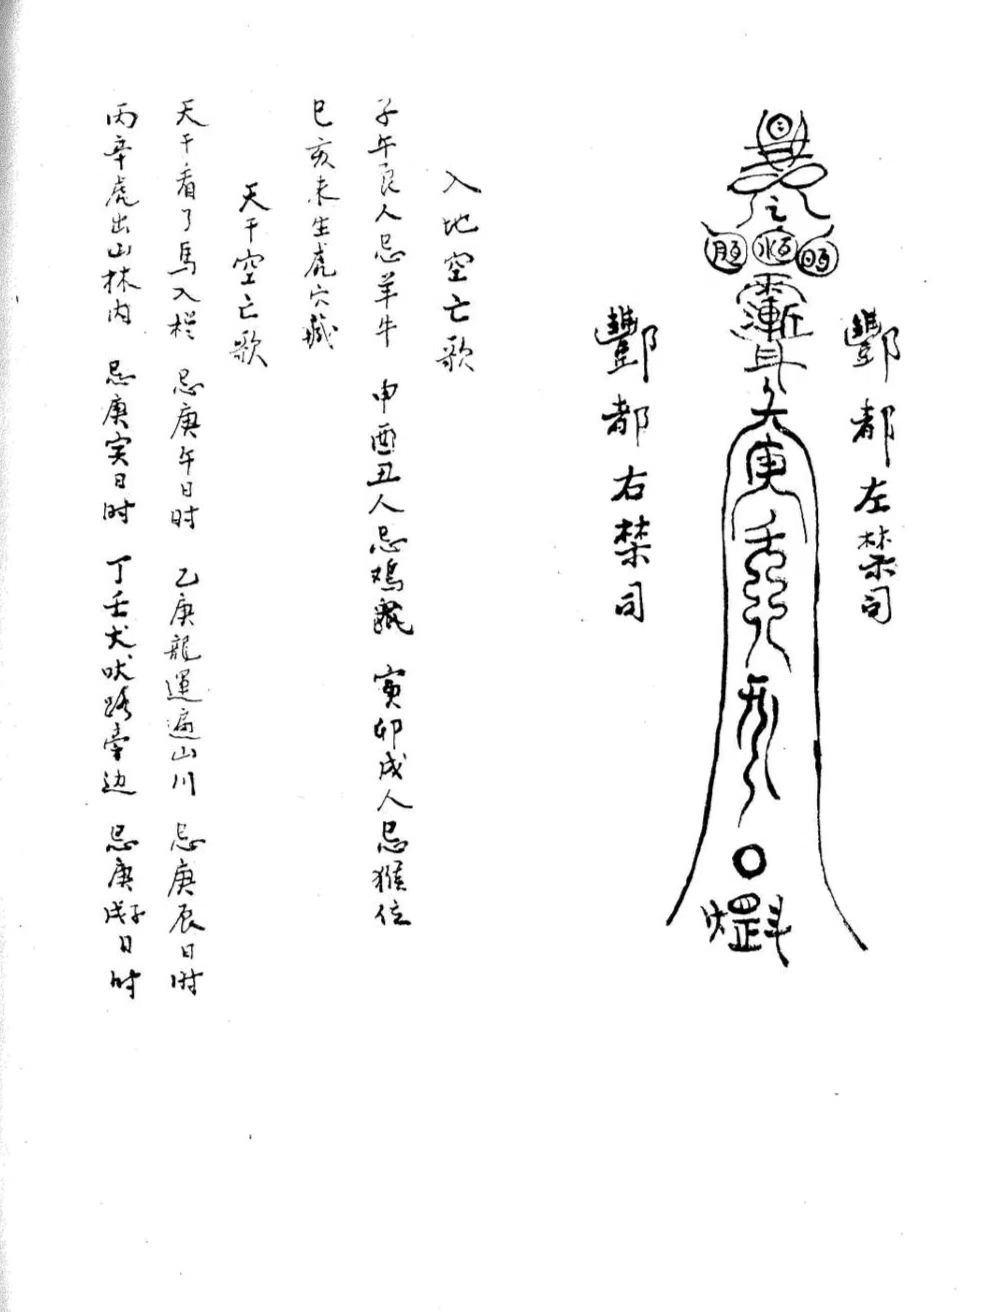 酆都左禁司
酆都右禁司
入地空亡歌
子午艮人忌羊牛 申酉丑人忌鸡 寅卯戍人忌猴位
巳亥未生虎穴藏
天干空亡歌
天干看了馬入栏 忌庚午日时 乙庚龍運遍山川 忌庚辰日时
丙辛虎出山林内 忌庚寅日时 丁壬犬吠路旁边 忌庚戍日时